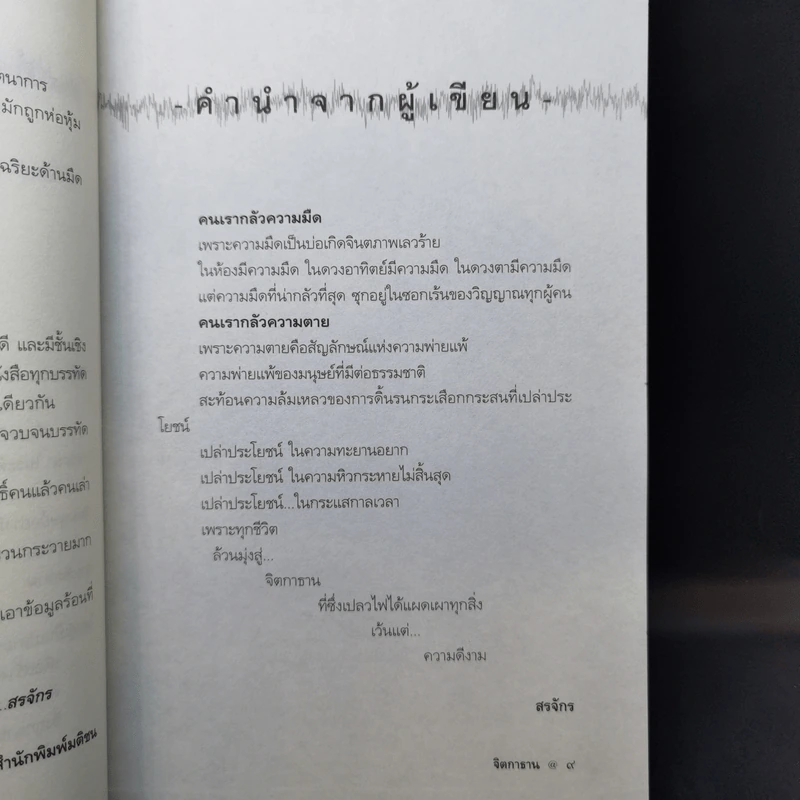 ตนาการ
มักถูกห่อหุ้ม
ฉริยะด้านมืด
ดี และมีชั้นเชิง
งสือทุกบรรทัด
เดียวกัน
จวบจนบรรทัด
ธิ์คนแล้วคนเล่า
วนกระวายมาก
เอาข้อมูลร้อนที่
...สรจักร
สำนักพิมพ์มติชน
-คำนำจากผู้เขียน-
คนเรากลัวความมืด
เพราะความมืดเป็นบ่อเกิดจินตภาพเลวร้าย
ในห้องมีความมืด ในดวงอาทิตย์มีความมืด ในดวงตามีความมืด
แต่ความมืดที่น่ากลัวที่สุด ซุกอยู่ในซอกเร้นของวิญญาณทุกผู้คน
คนเรากลัวความตาย
เพราะความตายคือสัญลักษณ์แห่งความพ่ายแพ้
ความพ่ายแพ้ของมนุษย์ที่มีต่อธรรมชาติ
สะท้อนความล้มเหลวของการดิ้นรนกระเสือกกระสนที่เปล่าประ
โยชน์
เปล่าประโยชน์ ในความทะยานอยาก
เปล่าประโยชน์ ในความหิวกระหายไม่สิ้นสุด
เปล่าประโยชน์...ในกระแสกาลเวลา
เพราะทุกชีวิต
ล้วนมุ่งสู่...
จิตกาธาน
ที่ซึ่งเปลวไฟได้แผดเผาทุกสิ่ง
เว้นแต่...
ความดีงาม
สรจักร
จิตกาธาน @ ๙